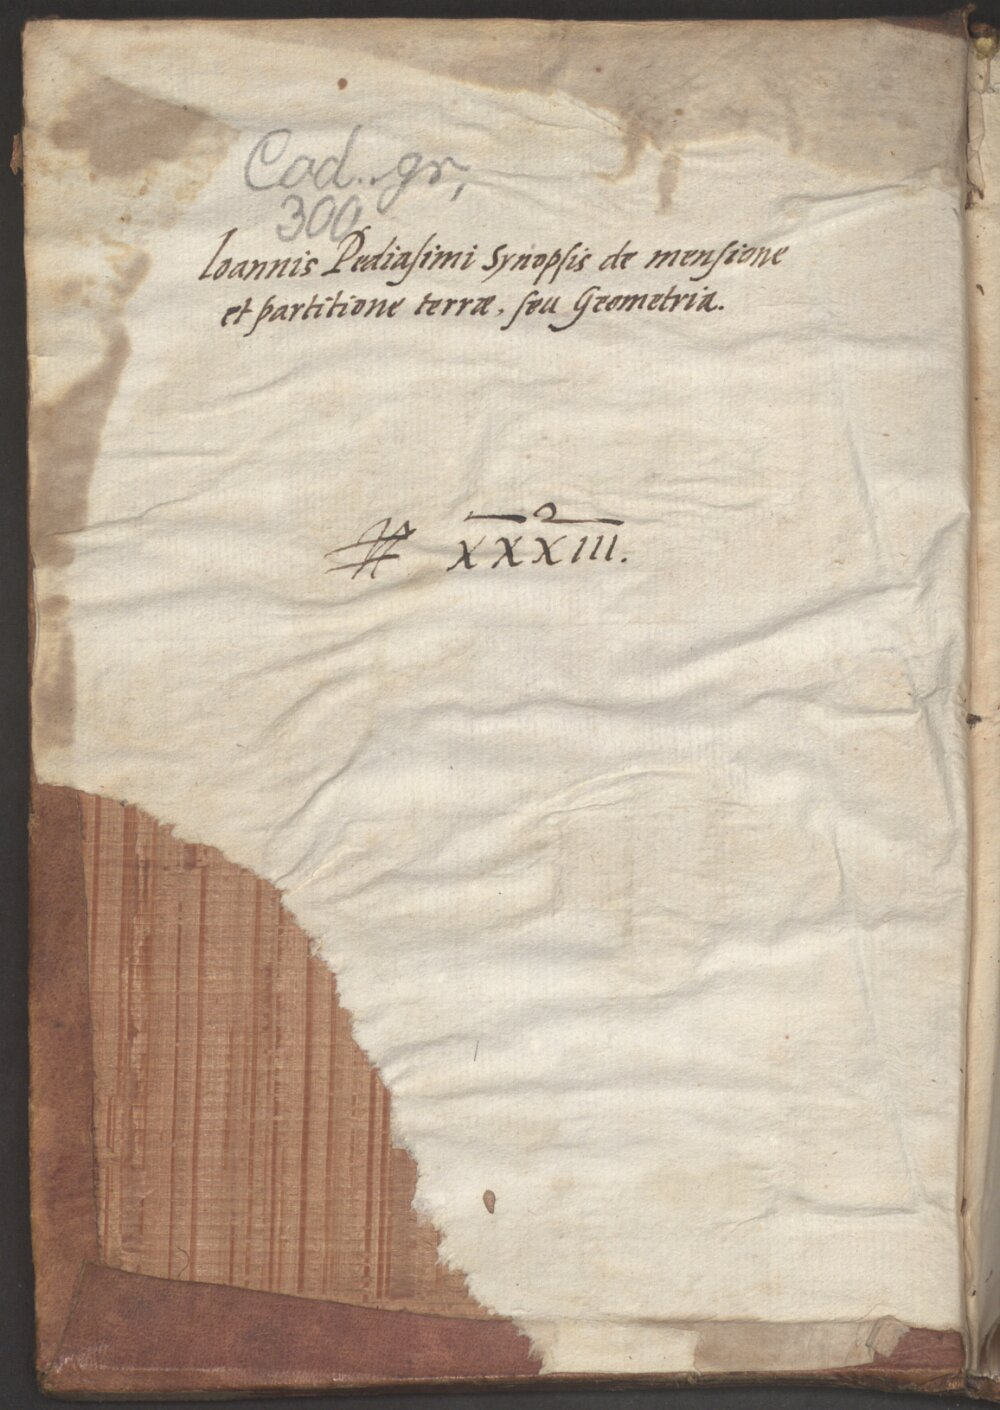 Cod. gr,
300
Ioannis Pediasimi Synopsis de mensione
et partitione terræ, seu Geometria.
XXXIII.